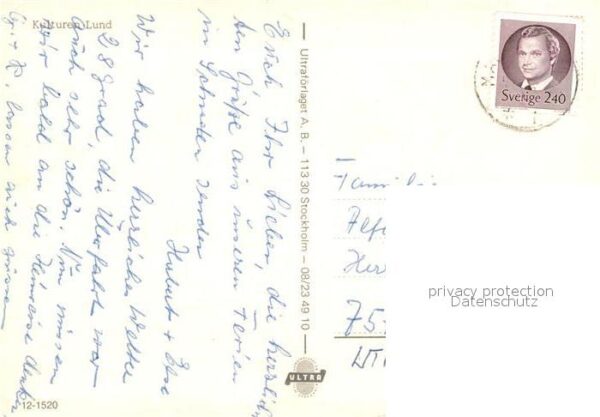 Kulturen Lund
Euch, Ihr Lieben, die herzlich
sten Grüße aus unseren Ferien
in Schweden senden
Hubert + Else
Wir haben herrliches Wetter
28 Grad, die Überfahrt war
auch sehr schön. Nun müssen
wir bald an die Heimreise denken
lassen auch grüssen
12-1520
Ultraförlaget A. B. – 113 30 Stockholm – 08/23 49 10
ULTRA
Sverige 240
Familie
75
privacy protection
Datenschutz